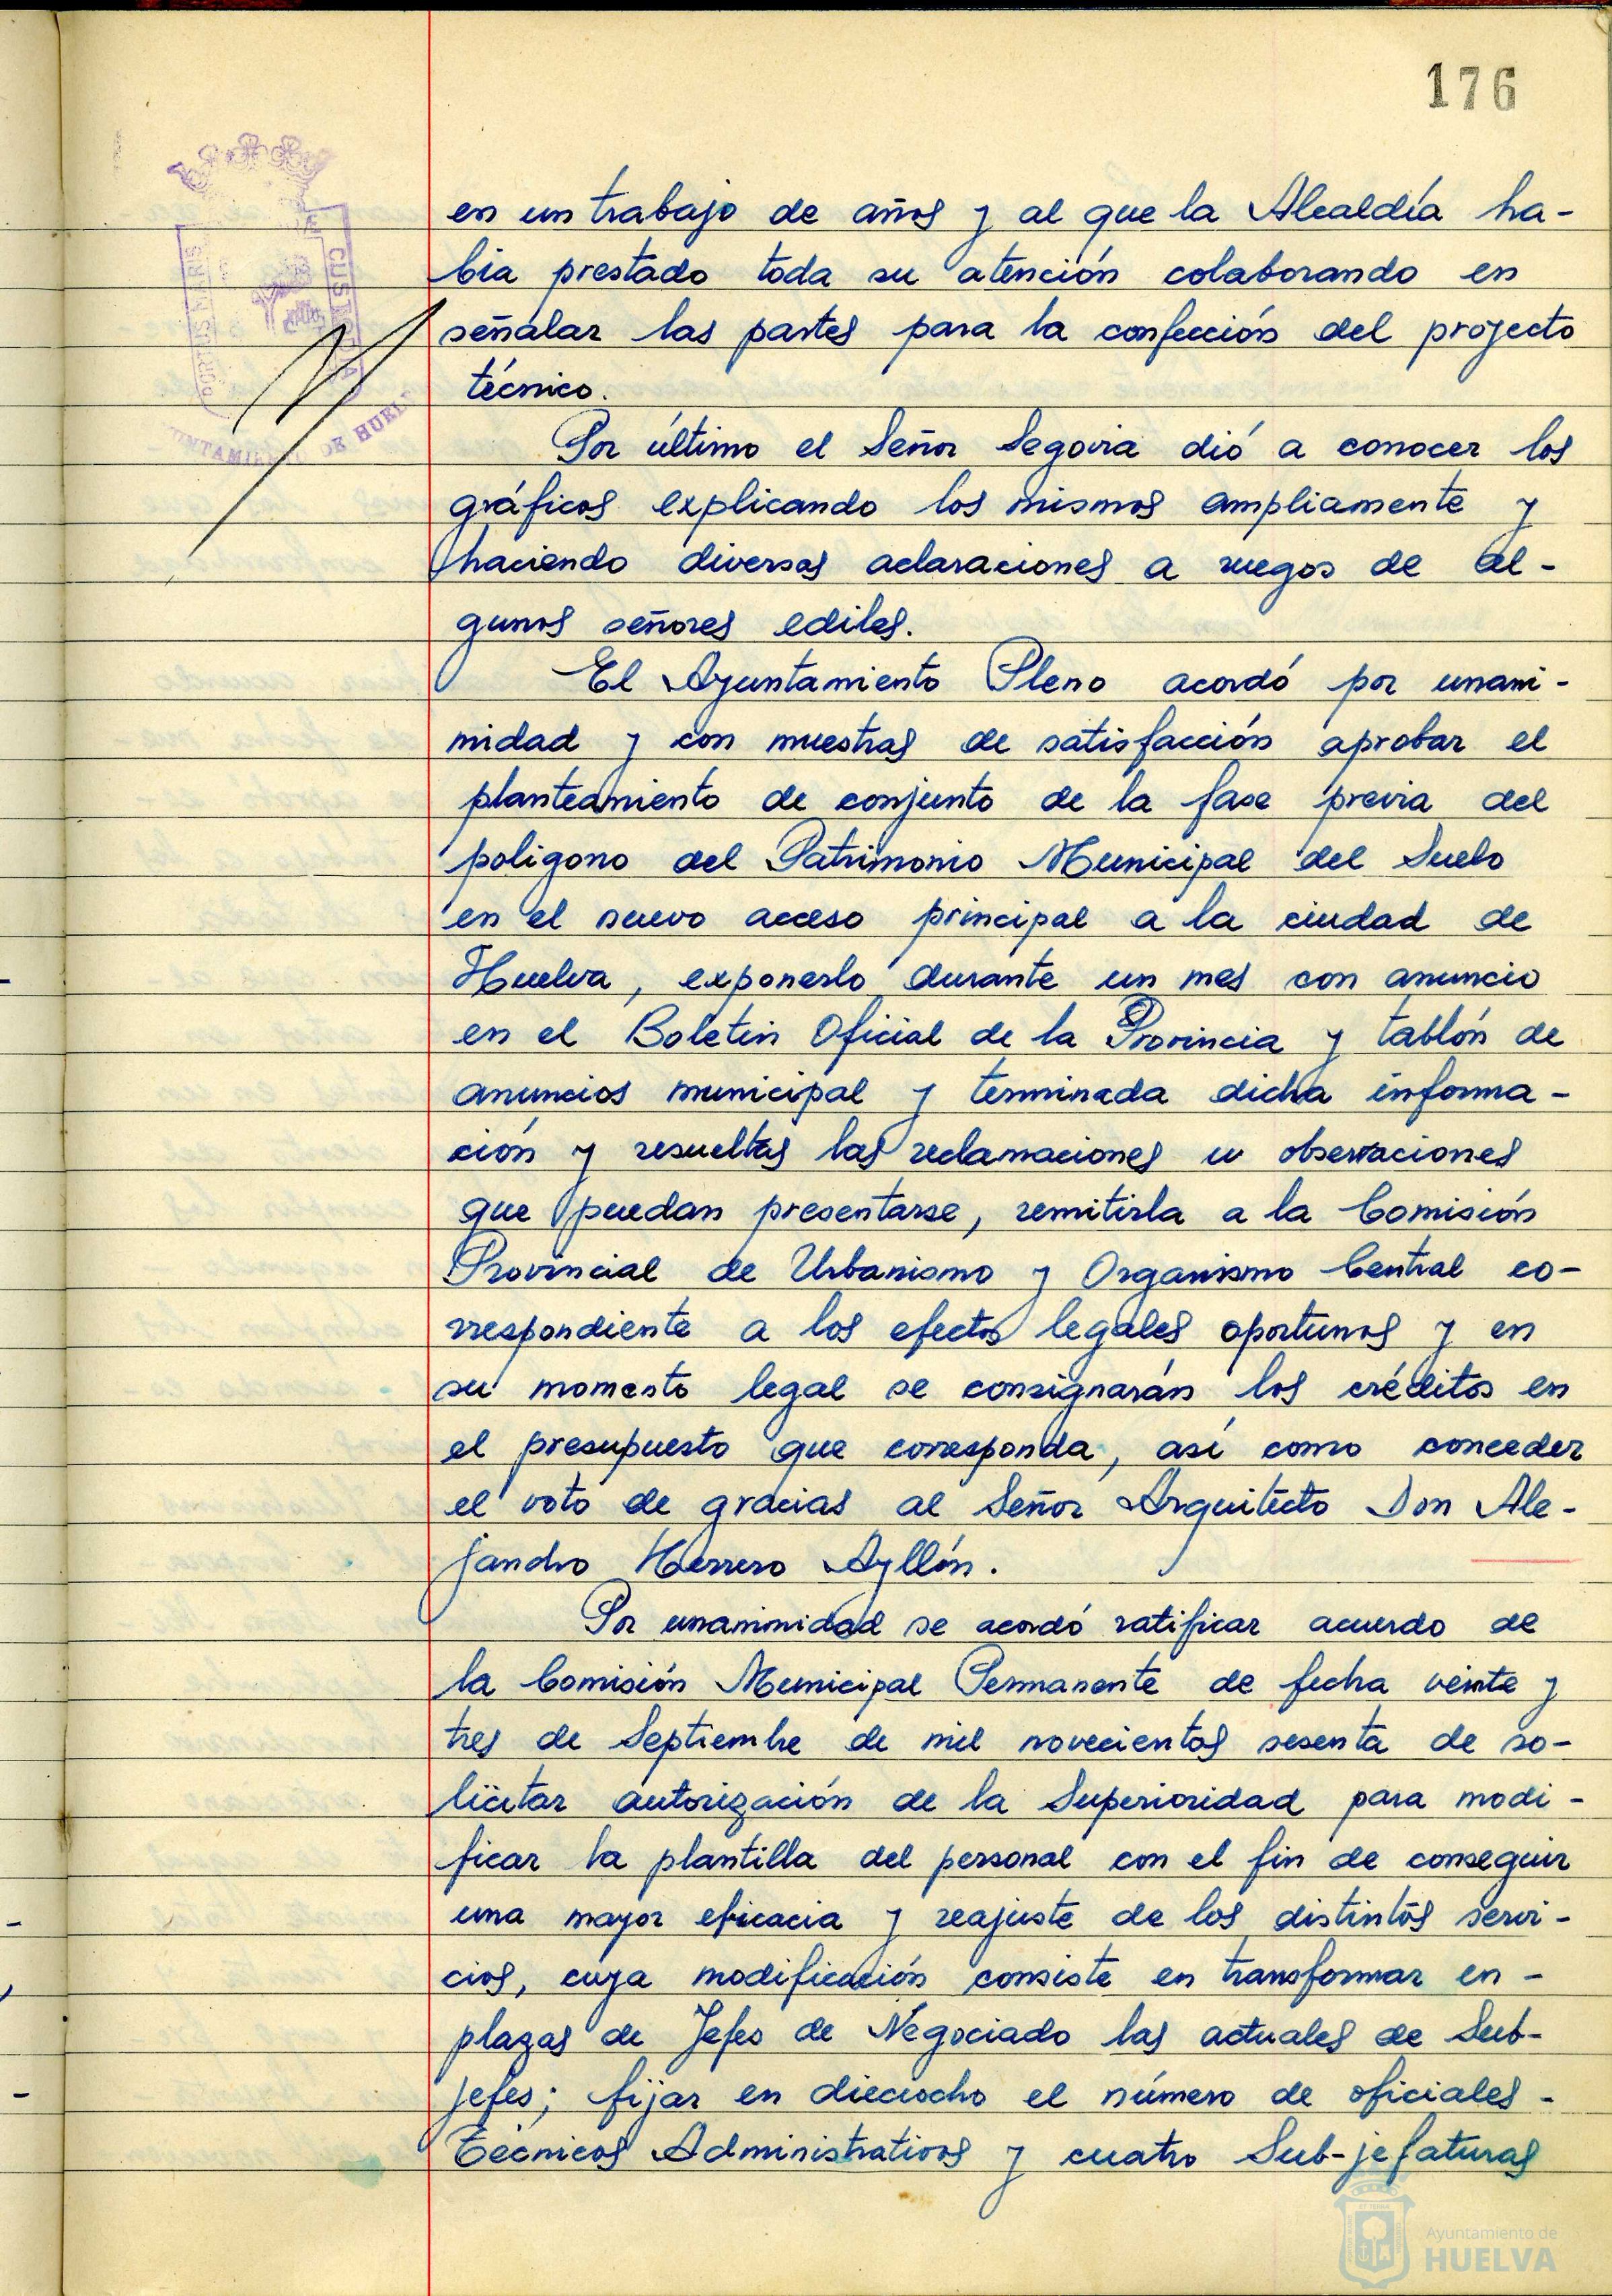 176
PORTUS MARIS
CUSTODIA
AYUNTAMIENTO DE HUELVA
en un trabajo de años y al que la Alcaldía ha-
bia prestado toda su atención colaborando en
señalar las partes para la confección del proyecto
técnico.
Por último el Señor Segovia dió a conocer los
gráficos explicando los mismos ampliamente y
haciendo diversas aclaraciones a ruegos de al-
gunos señores ediles.
El Ayuntamiento Pleno acordó por unani-
midad y con muestras de satisfacción aprobar el
planteamiento de conjunto de la fase previa del
poligono del Patrimonio Municipal del Suelo
en el nuevo acceso principal a la ciudad de
Huelva, exponerlo durante un mes con anuncio
en el Boletin Oficial de la Provincia y tablón de
anuncios municipal y terminada dicha informa-
ción y resueltas las reclamaciones u observaciones
que puedan presentarse, remitirla a la Comisión
Provincial de Urbanismo y Organismo Central co-
rrespondiente a los efectos legales oportunos y en
su momento legal se consignarán los créditos en
el presupuesto que corresponda, así como conceder
el voto de gracias al Señor Arquitecto Don Ale-
jandro Herrero Ayllón.
Por unanimidad se acordó ratificar acuerdo de
la Comisión Municipal Permanente de fecha veinte y
tres de Septiembre de mil novecientos sesenta de so-
licitar autorización de la Superioridad para modi-
ficar la plantilla del personal con el fin de conseguir
una mayor eficacia y reajuste de los distintos servi-
cios, cuya modificación consiste en transformar en-
plazas de Jefes de Negociado las actuales de Sub-
jefes; fijar en dieciocho el número de oficiales-
Técnicos Administrativos y cuatro Sub-jefaturas
Ayuntamiento de
HUELVA